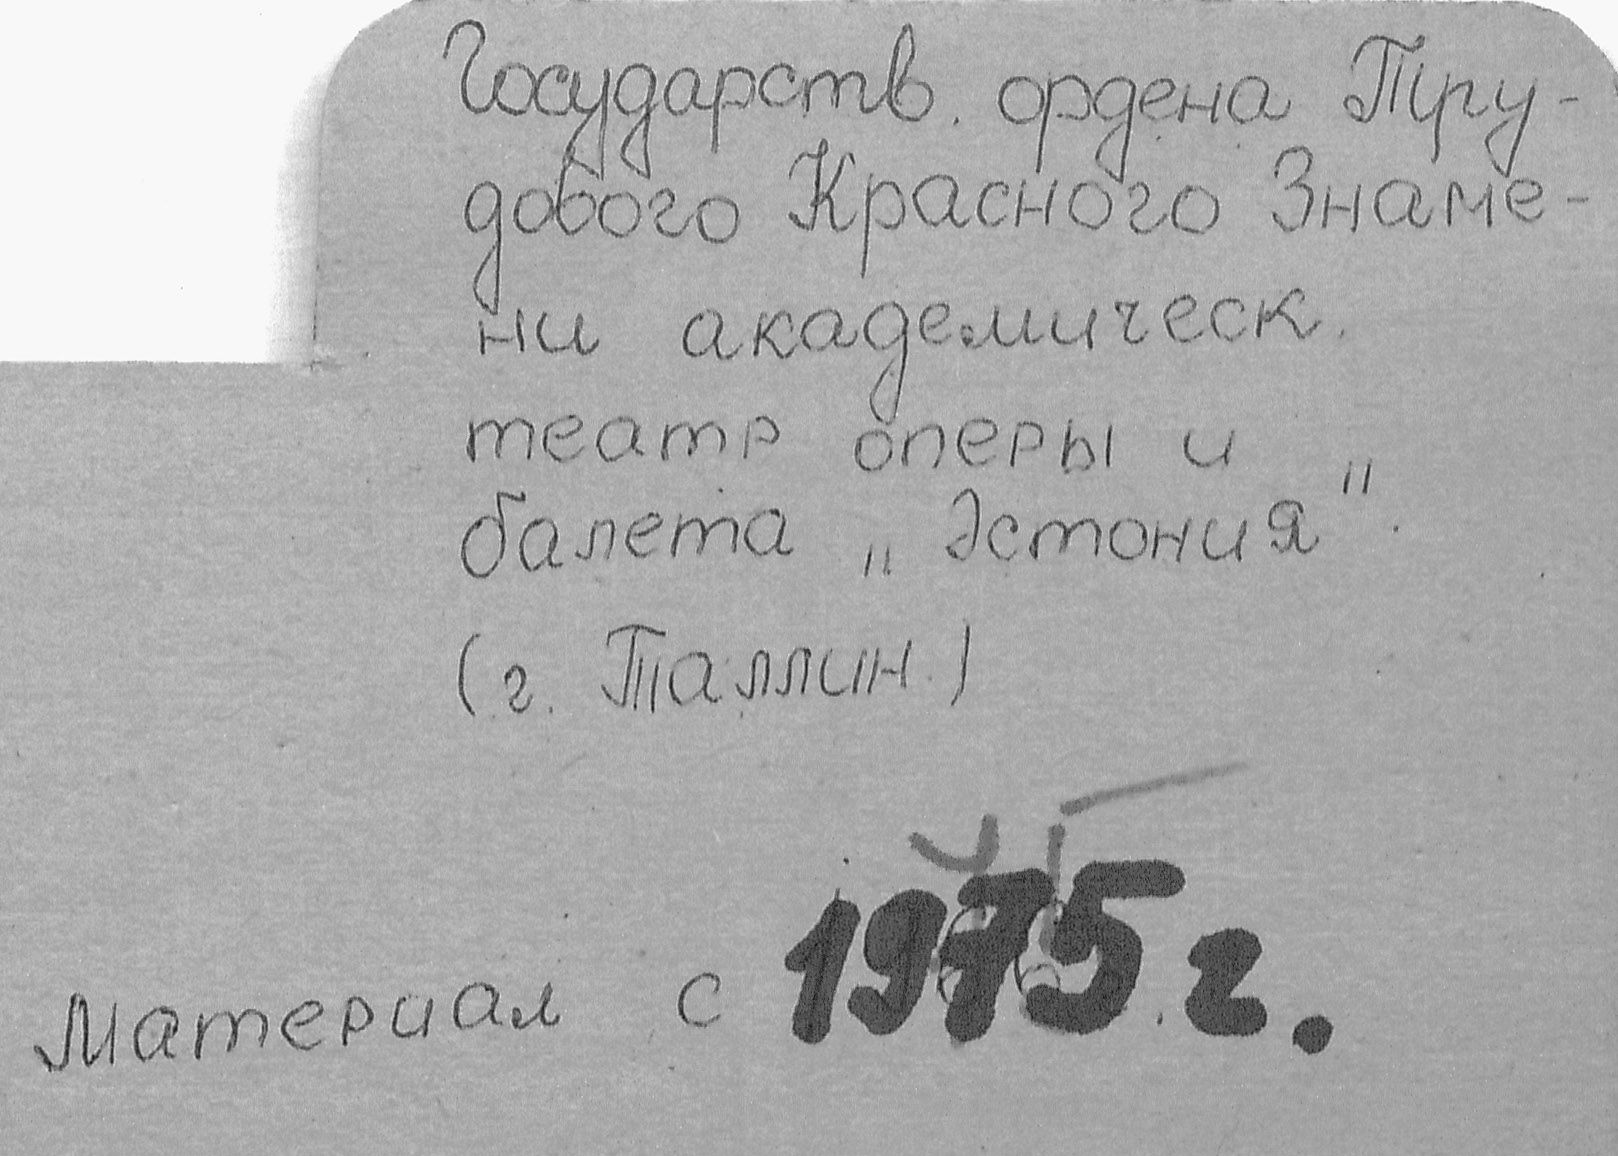 Государств. ордена Тру-
дового Красного Знаме-
ни академическ.
театр оперы и
балета „Эстония".
(г. Таллин.)
Материал с 1975 г.